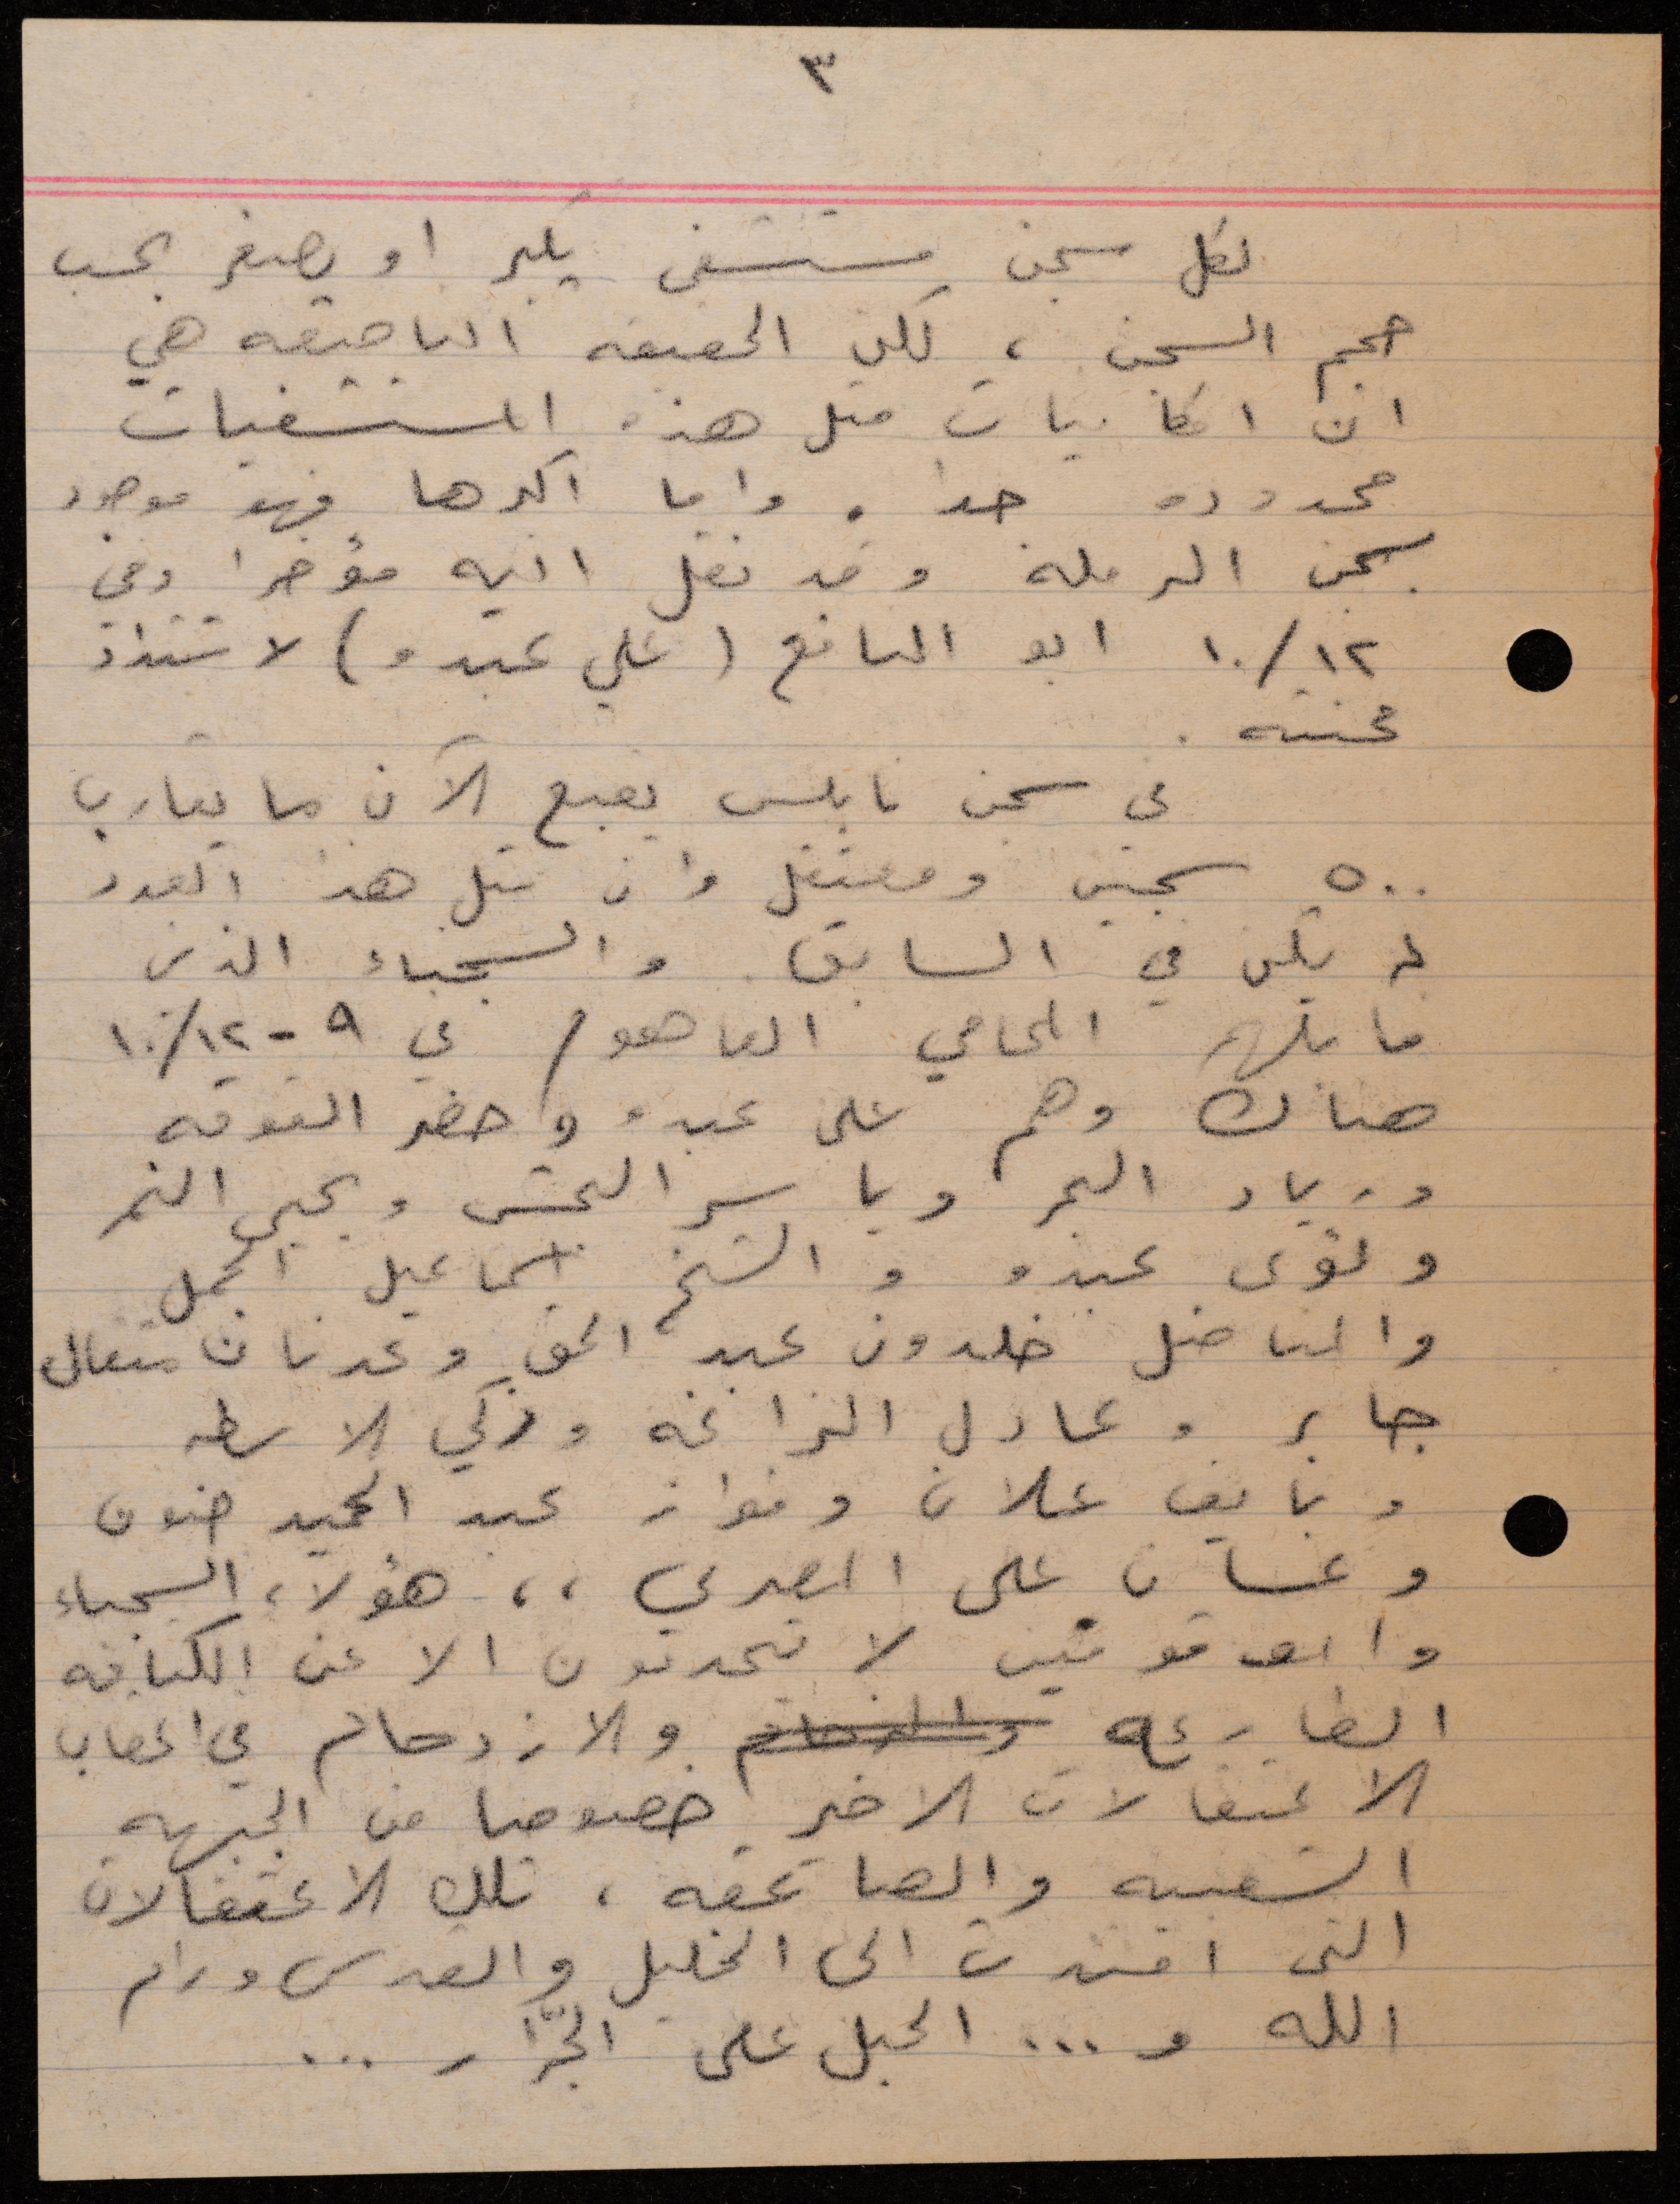 ٣
لكل سجن مستشفى يكبر او يصغر بحسب
حجم السجن ، لكن الحقيقه الناصعه هي
ان امكانيات مثل هذه المستشفيات
محدوده جدا . واما اكبرها فهو موجود
بسجن الرملة وقد نقل اليه مؤخرا وفي
١٠/١٢ ابو النافع (علي عبده) لاشتداد
محنته .
في سجن نابلس يقبع الآن ما يقارب
٥٠٠ سجين ومعتقل وان مثل هذا العدد
لم يكن في السابق . والسجناء الذين
قابلهم المحامي الفاهوم في ٩ - ١٠/١٢
هناك وهم علي عبده وخضر القوقه
وزياد النمر وياسر البحش ويحيى النمر
ولؤي عبده والشيخ اسماعيل الجمل
والمناضل خلدون عبد الحق وعدنان مثقال
جابر وعادل الزاغه وزكي الاسطه
ونايف علان وفواز عبد الحميد
وغسان علي المصري ،، هؤلاء السجناء
والموقوفين لا يتحدثون الا عن الكثافه
الطارئه والازدحام في اعقاب
الاعتقالات الاخيره خصوصا من الجبهه
الشعبيه والصاعقه ، تلك الاعتقالات
التي امتدت الى الخليل والقدس ورام
الله و ... الحبل على الجرّار ...